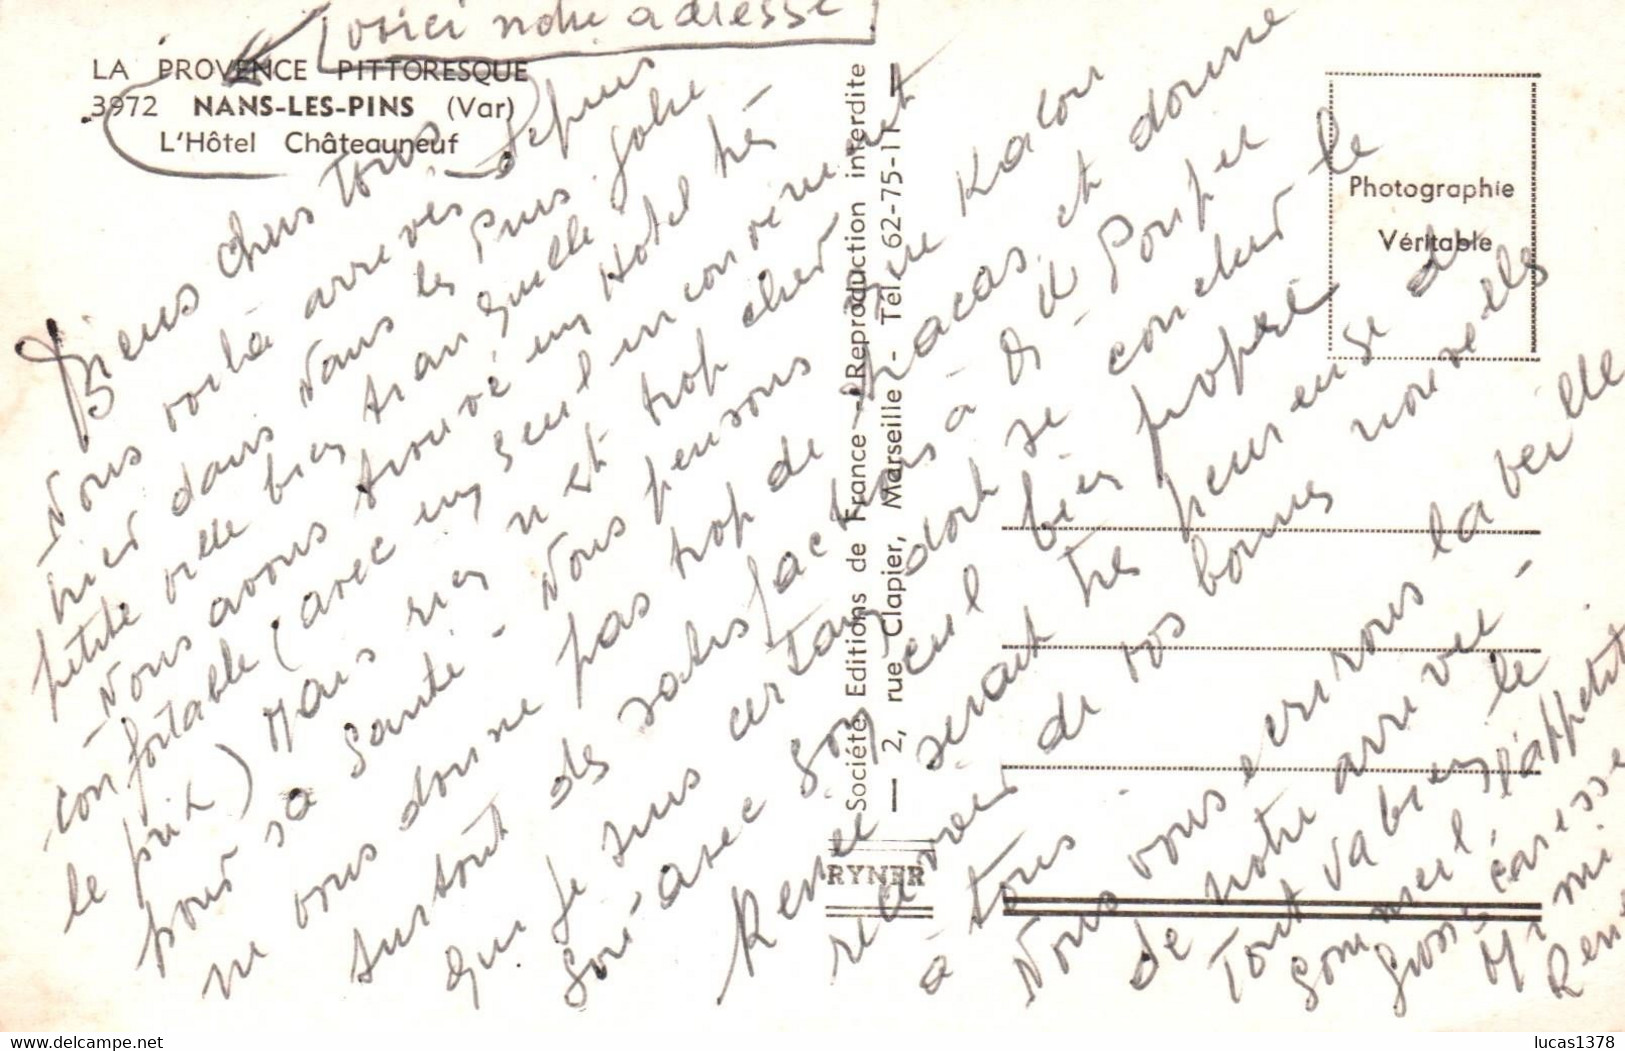 voici notre adresse
LA PROVENCE PITTORESQUE
3972 NANS-LES-PINS (Var)
L'Hôtel Châteauneuf
Photographie
Véritable
Société Editions de France - Reproduction interdite
2, rue Clapier, Marseille - Tel. 62-75-11
RYNER
Biens chers tous
Nous voilà arrivés depuis
hier dans Nans les Pins jolie
petite ville bien tranquille
Nous avons trouvé un Hotel très
confortable (avec un seul inconvenient
le prix) Mais rien n'est trop cher
pour sa Santé - Nous pensons que
ne vous donne pas trop de tracas, et donne
surtout des satisfactions à
que je suis certain dont se conclur le
Soi avec son œuil bien propre
Renée serait très heureuse de
recevoir de vos bonnes nouvelles
à tous
Nous vous ecrirons la veille
de notre arrivee -
Tout va bien le
sommeil, l'appetit
Grosses caresses
Mimi
René
lucas1378